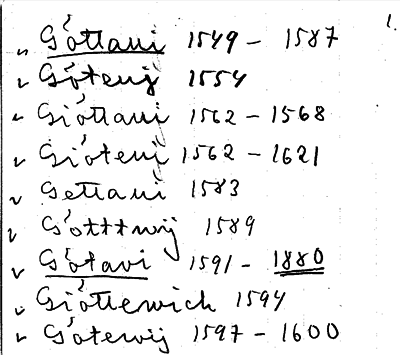 1.
Gʼóttani 1549 - 1587
Gʼótenij 1554
Gióttani 1562 - 1568
Gióteni 1562 - 1621
Gettani 1583
Gʼotttwij 1589
Gʼótavi 1591 - 1880
Giótterwich 1594
Gʼóterwij 1597 - 1600